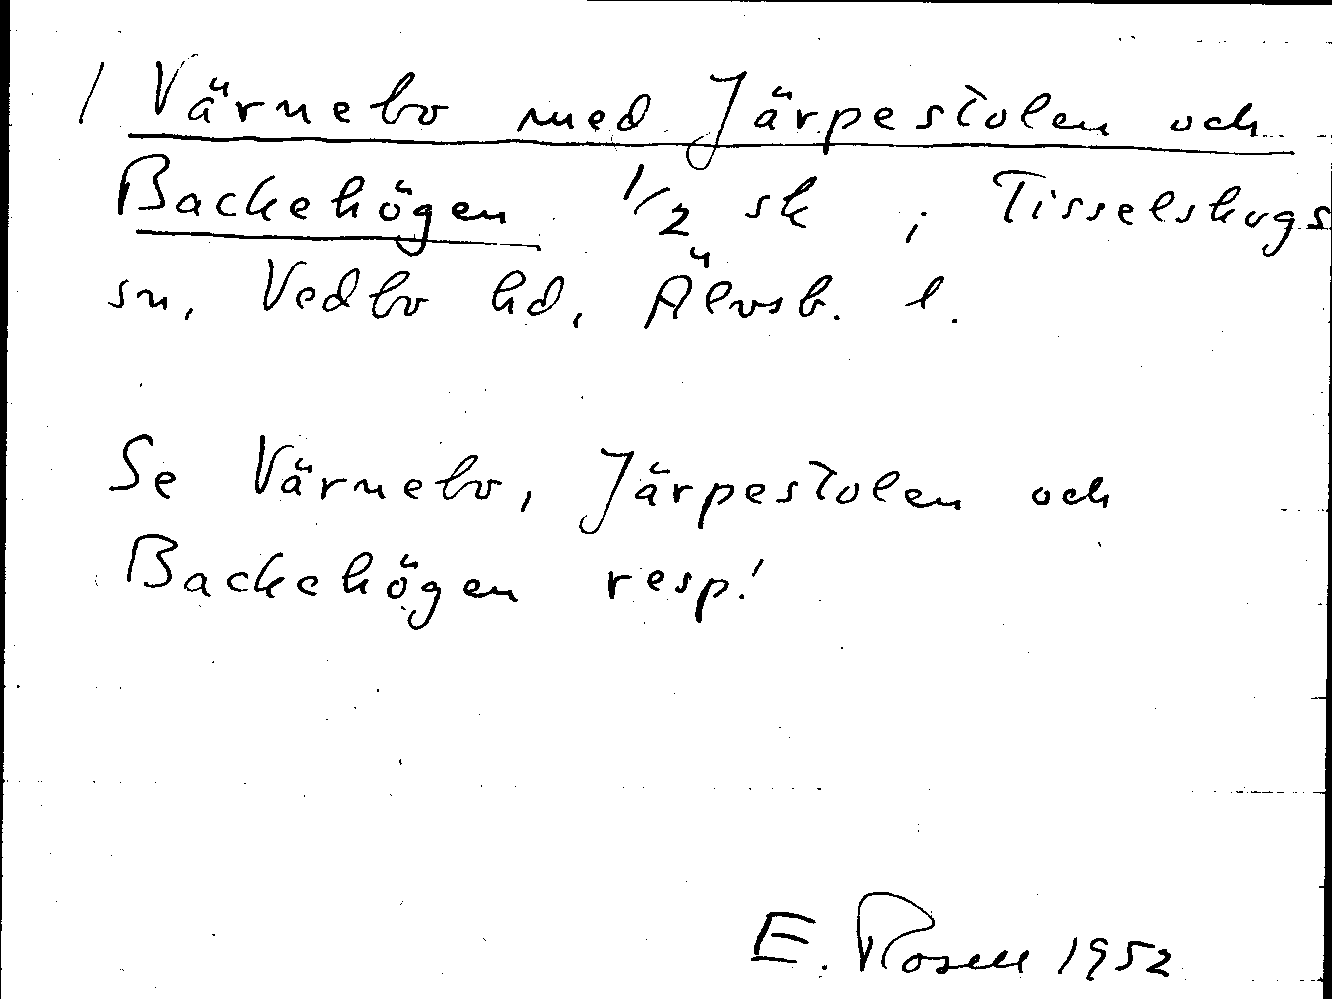 / Värnebo med Järpestolen och
Backehögen 1/2 sk ; Tisselskogs
sn, Vedbo hd, Älvsb. l.
Se Värnebo, Järpestolen och
Backehögen resp!
E. Rosell 1952